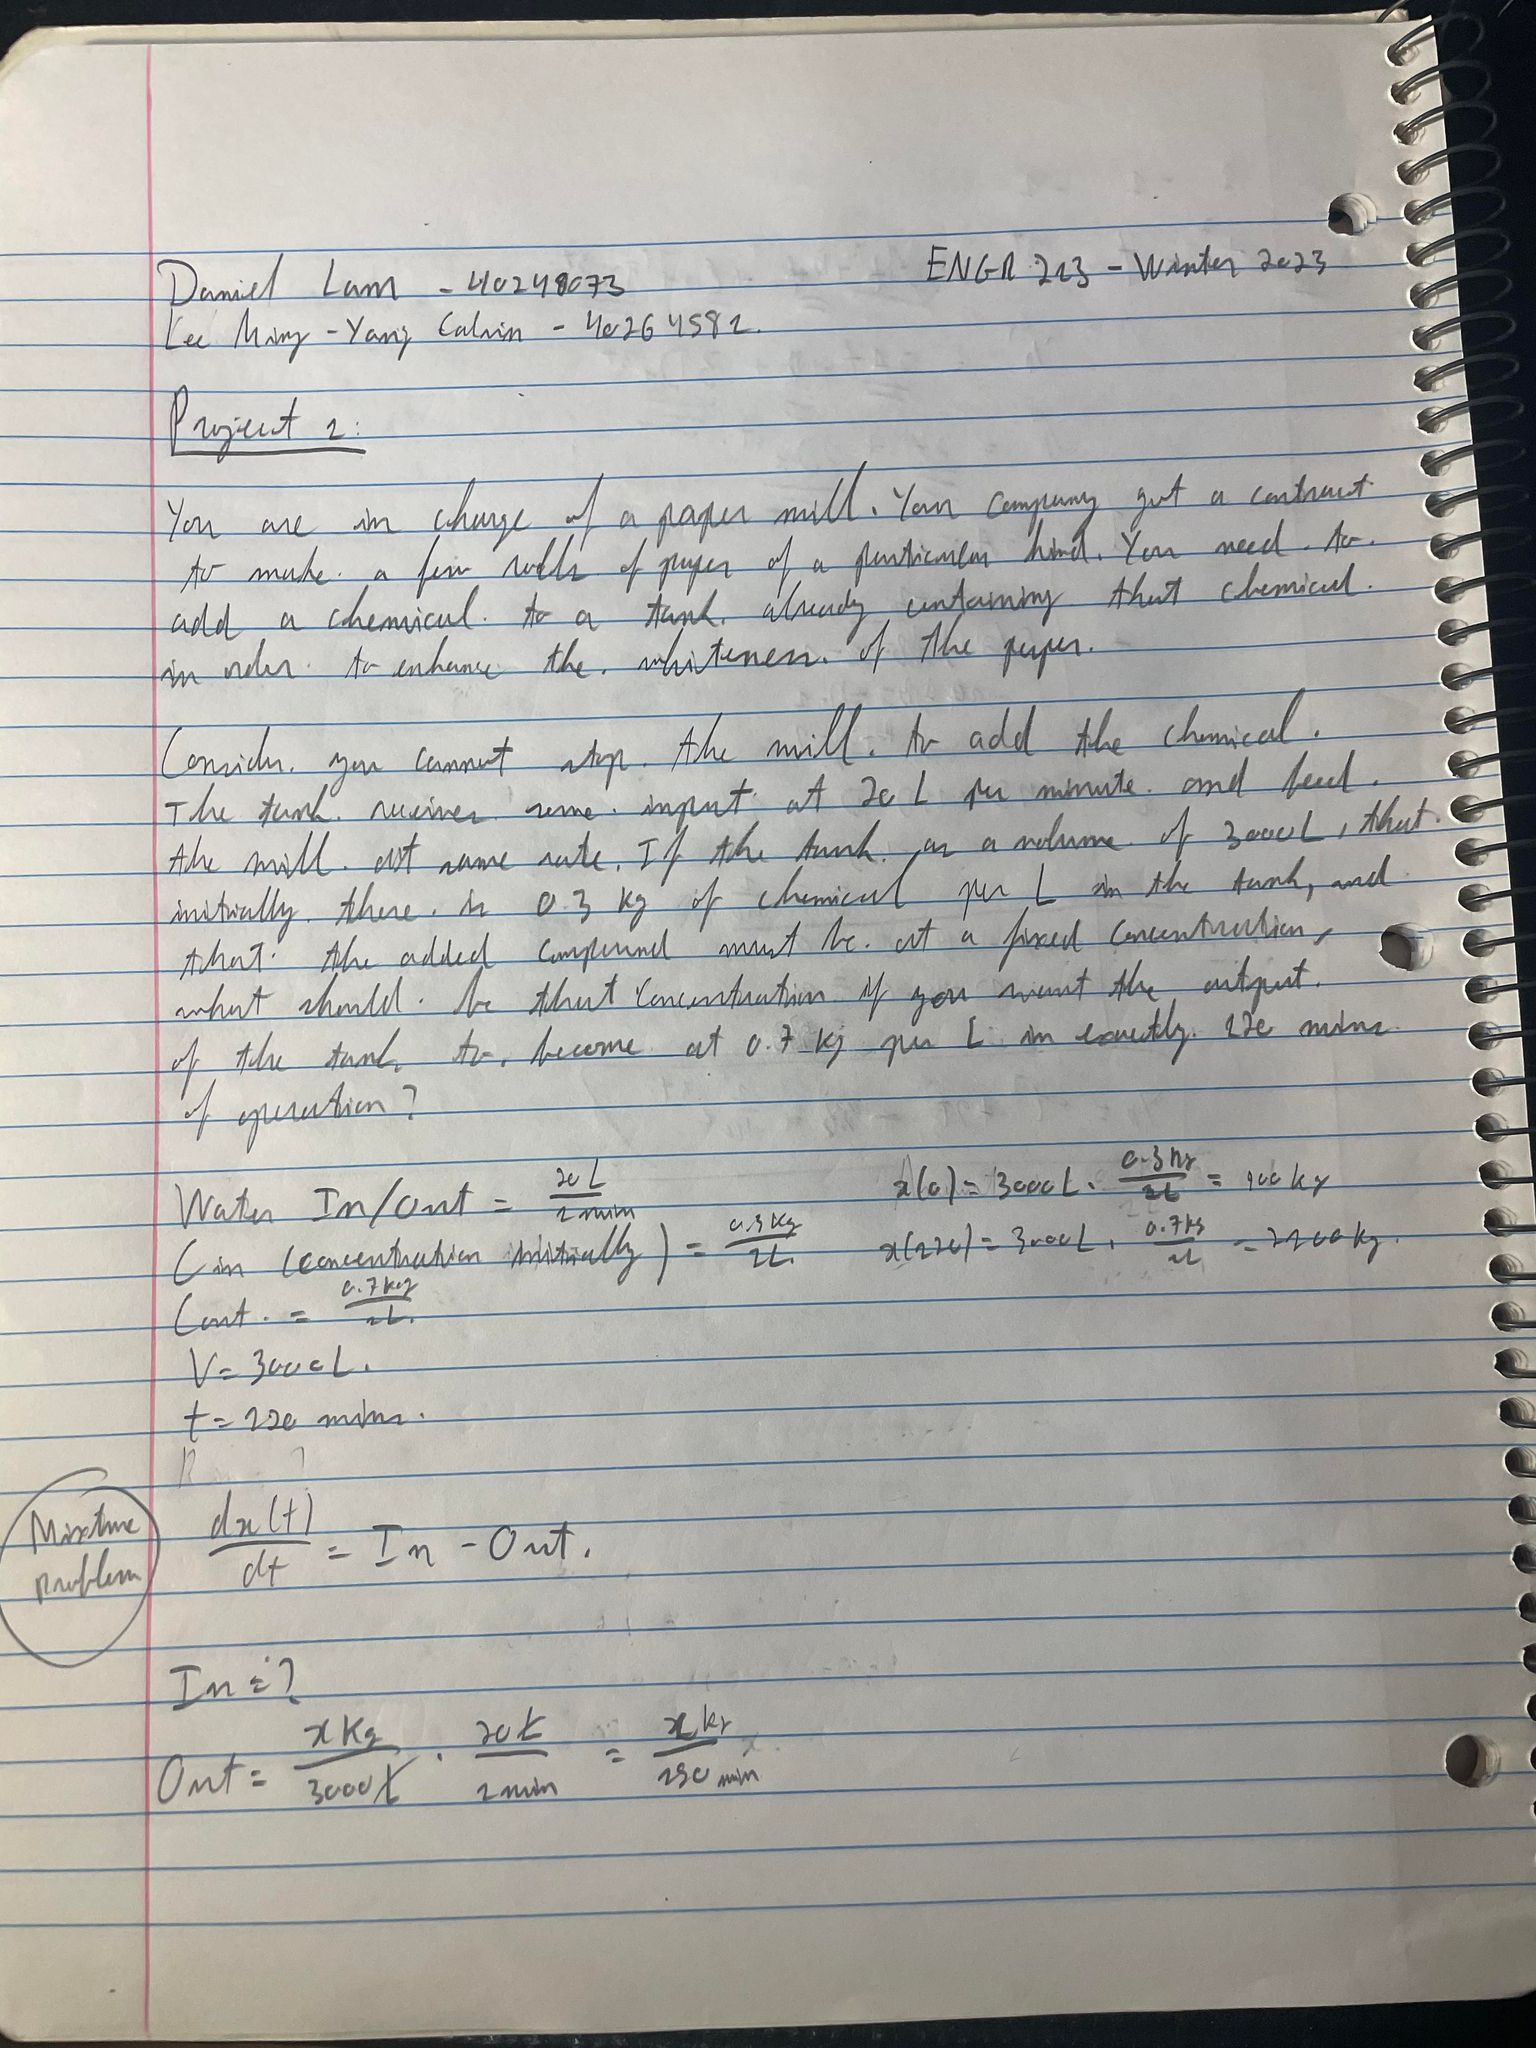 Daniel Lam - 40248073
ENGR 213 - Winter 2023
Lee Ming-Yang Calvin - 40264582
Project 1:
You are in charge of a paper mill. Your company got a contract
to make a few rolls of paper of a particular kind. You need to
add a chemical to a tank already containing that chemical
in order to enhance the whiteness of the paper.
Consider you cannot stop the mill to add the chemical.
The tank receives some input at 20 L per minute and feed
the mill at same rate. If the tank as a volume of 3000L, that
initially there is 0.3 kg of chemical per L in the tank, and
that the added compound must be at a fixed concentration,
what should be that concentration if you want the output
of the tank to become at 0.7 kg per L in exactly 120 mins
of operation?
Water In/Out = 20L/1min
x(0) = 3000L · 0.3kg/1L = 900kg
Cin (concentration initially) = 0.3kg/1L
x(120) = 3000L · 0.7kg/1L = 2100kg.
Cout = 0.7kg/1L
V = 3000L.
t = 120 mins.
Mixture
problem
dx(t)/dt = In - Out.
In = ?
Out = x kg/3000L · 20L/1min = x kg/150min